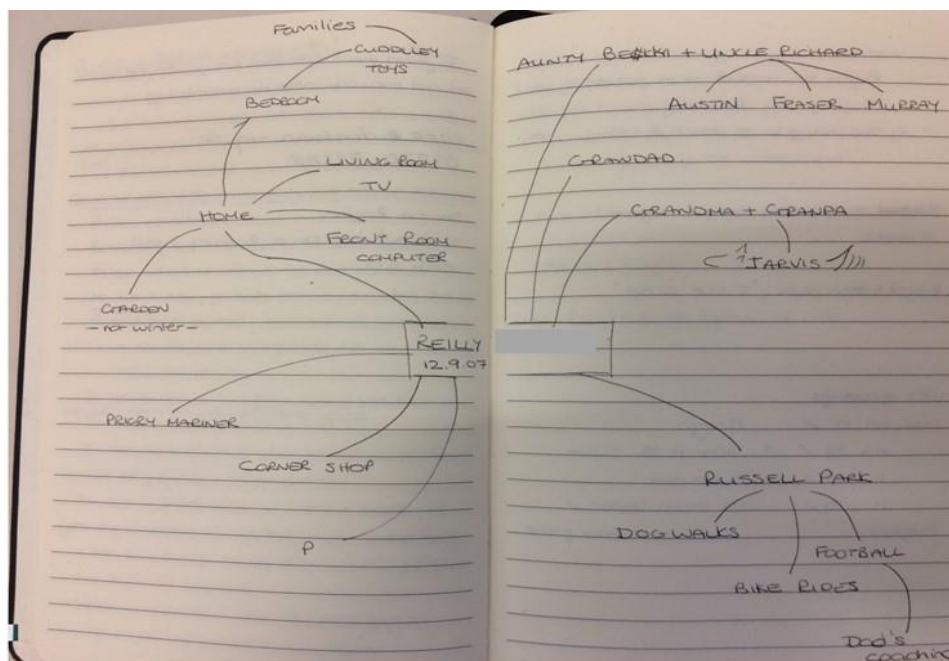 Families
CUDDLEY
TOYS
BEDROOM
LIVING ROOM
TV
HOME
FRONT ROOM
COMPUTER
GARDEN
- not winter -
REILLY
12.9.07
PRIORY MARINER
CORNER SHOP
P
AUNTY BEKKI + UNKLE RICHARD
AUSTIN FRASER MURRAY
GRANDAD
GRANDMA + GRANPA
JARVIS
RUSSELL PARK
DOG WALKS
FOOTBALL
BIKE RIDES
Dad's
coaching